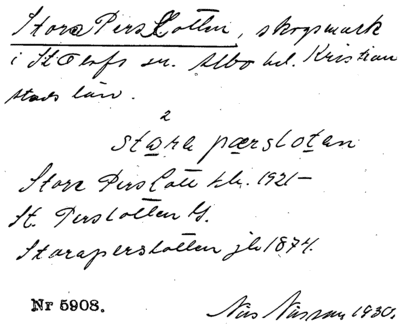 Stora Perslotten, skogsmark
i St Olofs sn. Albo hd. Kristian
stads län.
2
stora pærslotan
Stora Perslott hk. 1921–
St. Perslotten G.
Storaperslotten jb 1874.
Nr 5908.
Nils Nilsson 1930.